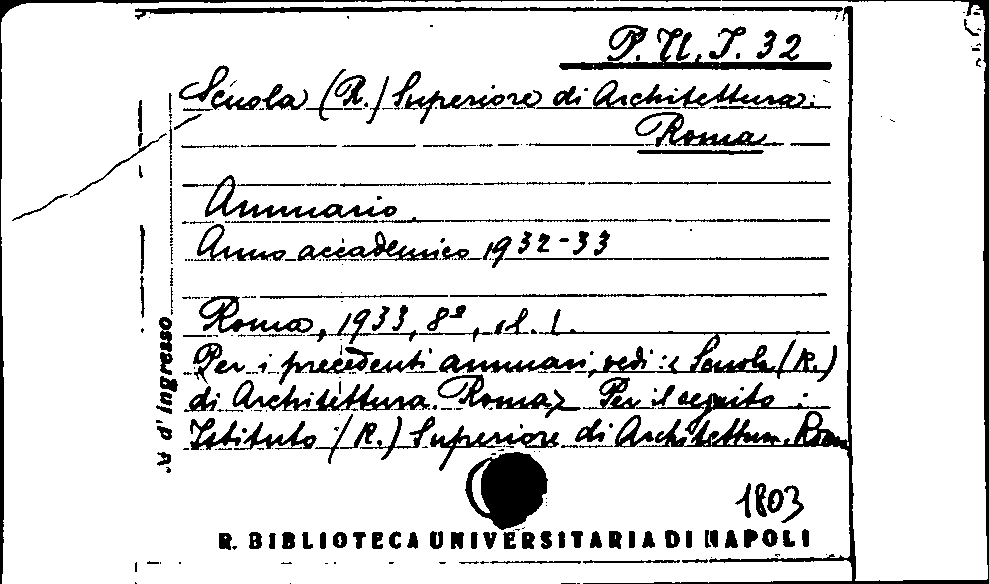 P. U. I. 32
Scuola (R.) Superiore di Architettura.
Roma
Annuario.
Anno accademico 1932-33
Roma, 1933, 8º, 1.
Per i precedenti annuari, vedi: < Scuola (R.)
di Architettura. Roma > Per il seguito :
Istituto (R.) Superiore di Architettura. Roma
d'ingresso
1803
R. BIBLIOTECA UNIVERSITARIA DI NAPOLI